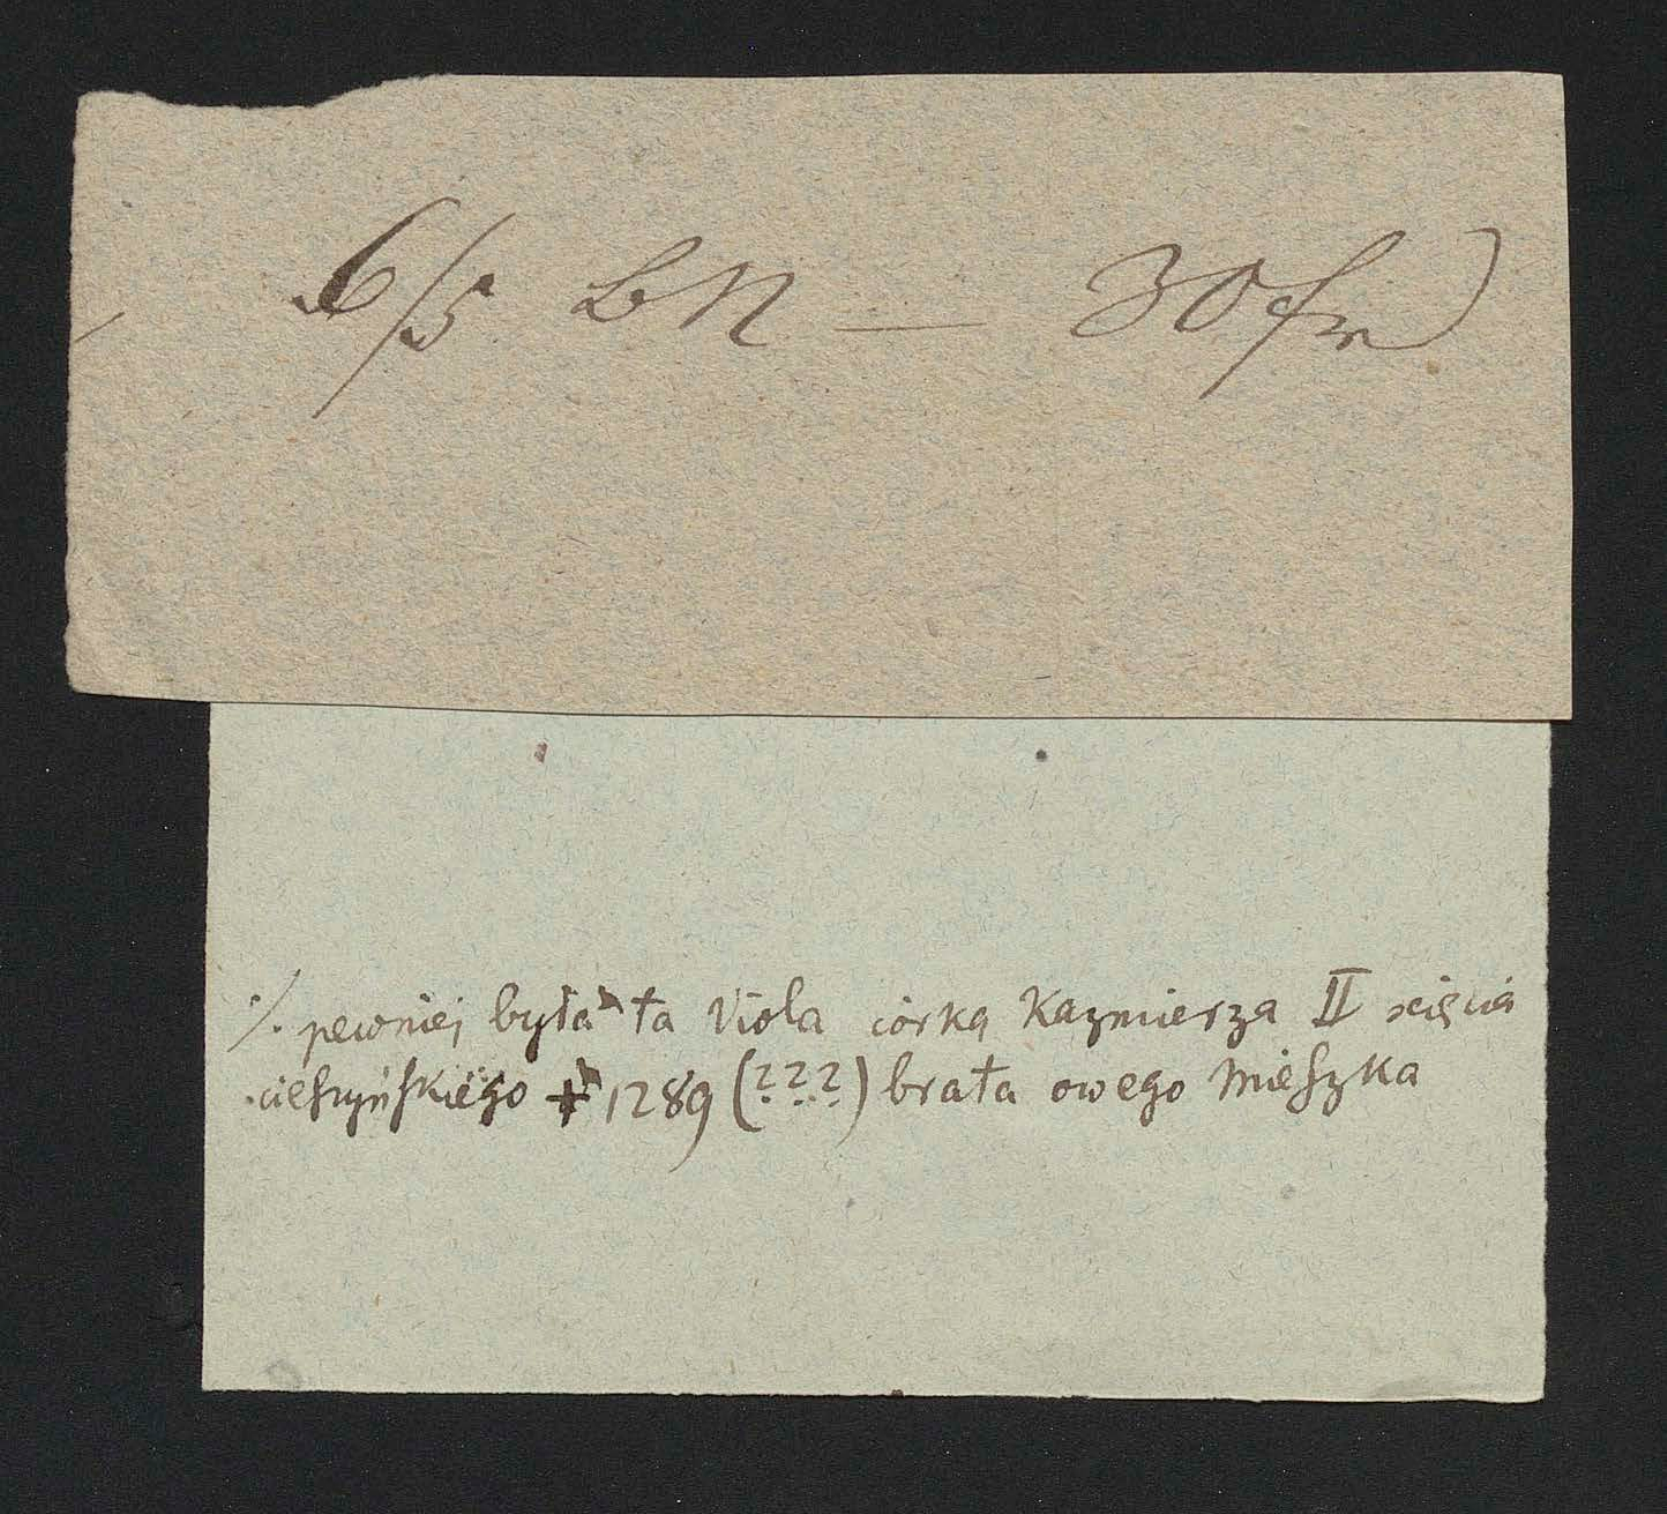 6/5 BN — 30 fr)
·/. pewniej była ta Viola córką Kazmierza II xcięcia
cieszyńskiego + 1289 (???) brata owego Mieszka